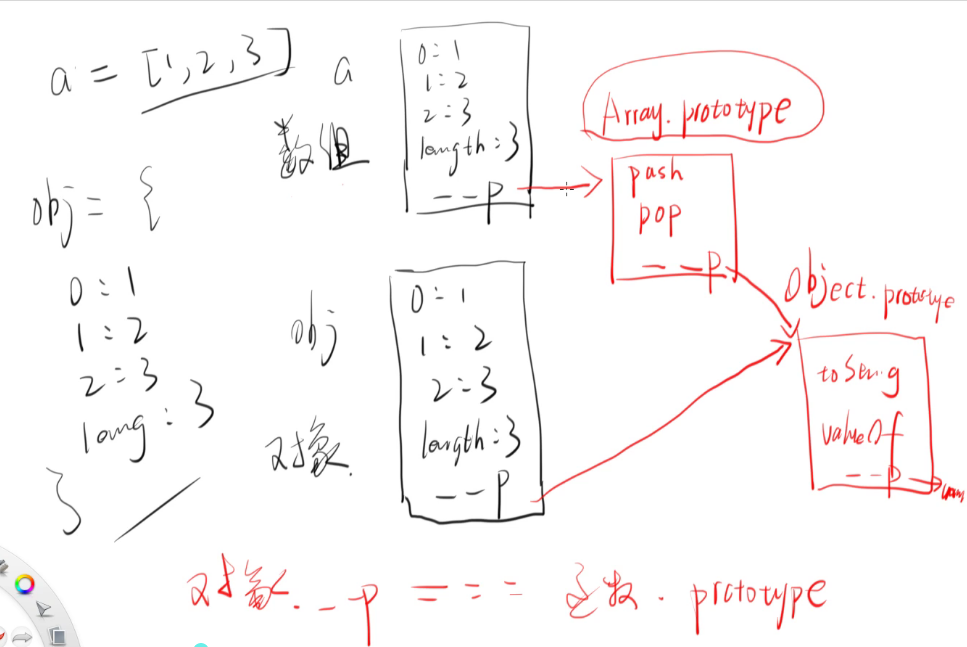 a = [1,2,3]
obj = {
0 : 1
1 : 2
2 : 3
long : 3
}
a
数组
0 : 1
1 : 2
2 : 3
length : 3
__p
obj
对象.
0 : 1
1 : 2
2 : 3
length : 3
__p
Array.prototype
push
pop
__p
Object.prototye
valueOf
__p
对象.__p === 函数.prototype